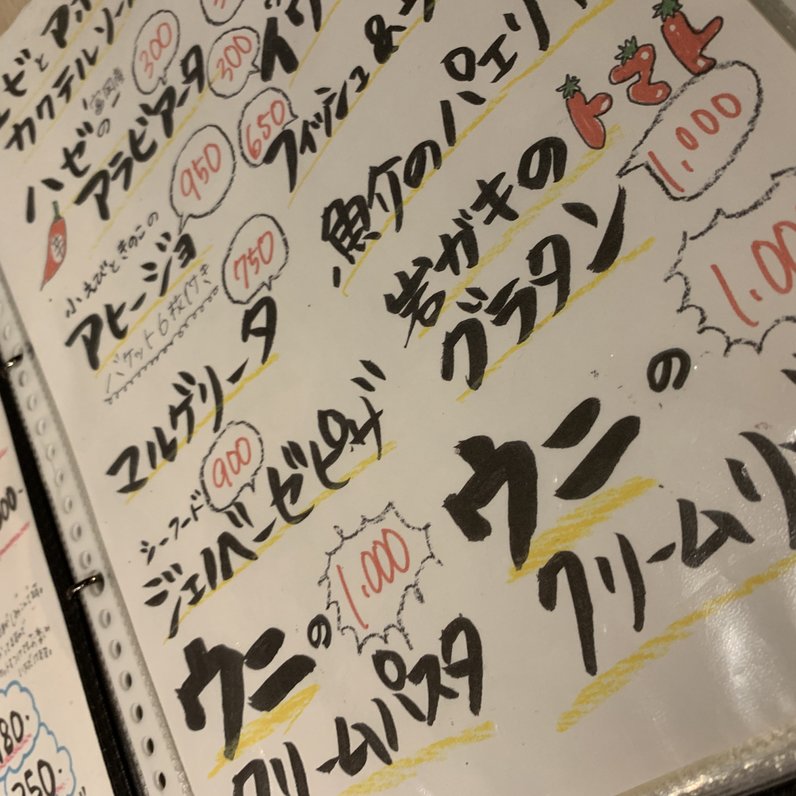 カクテルソー
300
ハゼの
アラビアータ
300
小えびときのこの
950
アヒージョ
バケット6枚付き
マルゲリータ
750
シーフード
900
ジェノベーゼピザ
ウニの
1,000
クリームパスタ
650
フィッシュ&
魚介のパエリ
岩ガキのトマト
グラタン
1,000
ウニの
1,00
クリームリ